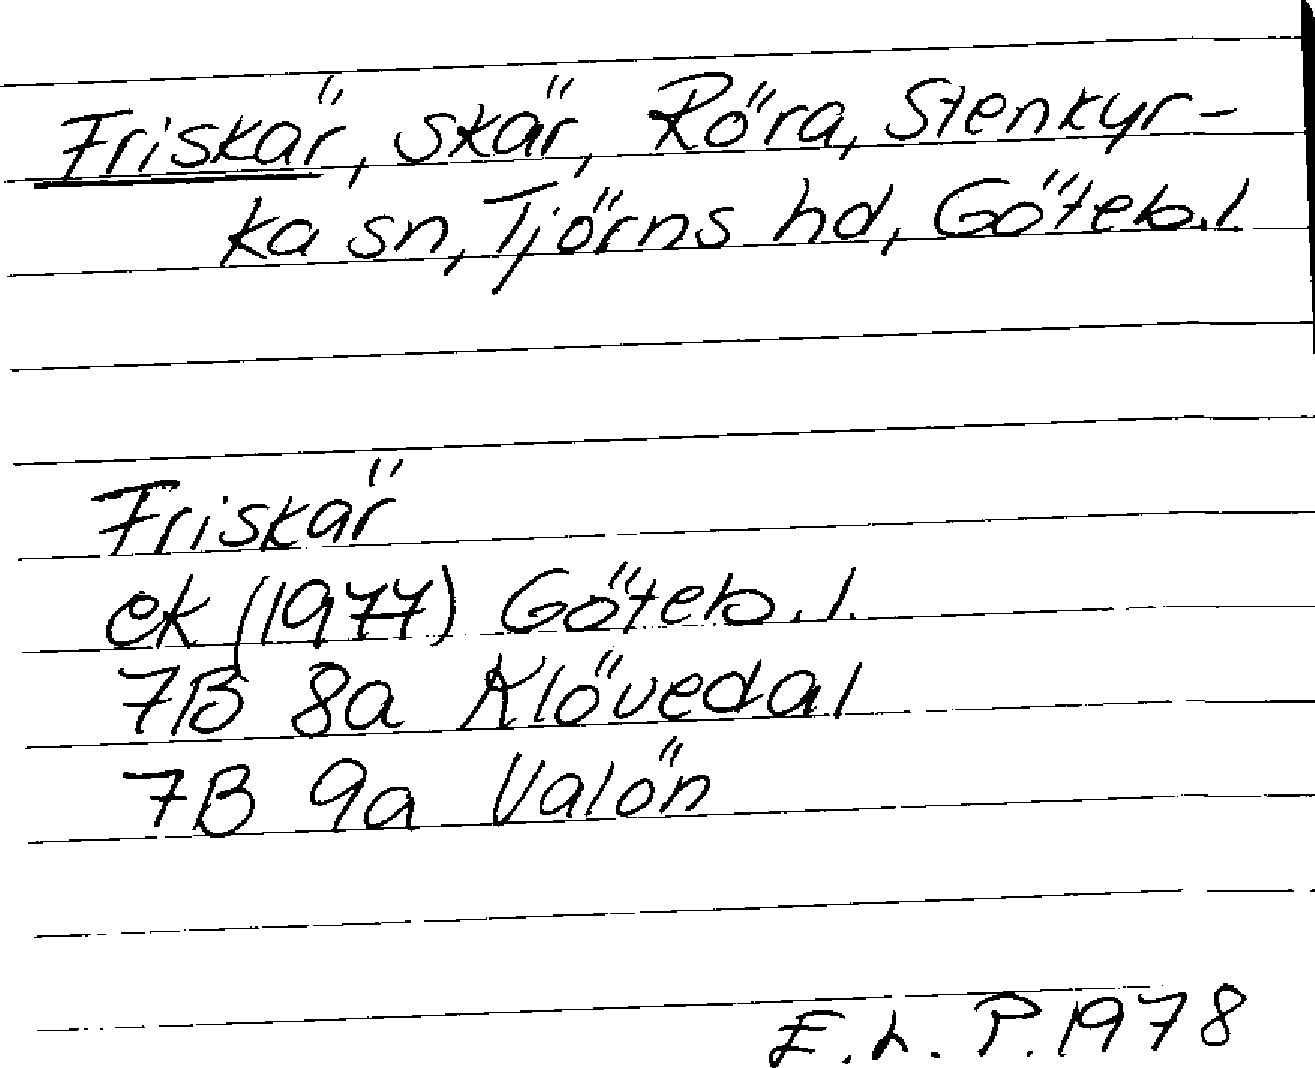 Friskär, skär, Röra, Stenkyr-
ka sn, Tjörns hd, Göteb.l.
Friskär
ek (1977) Göteb.l.
7B 8a Klövedal
7B 9a Valön
E.L.P.1978